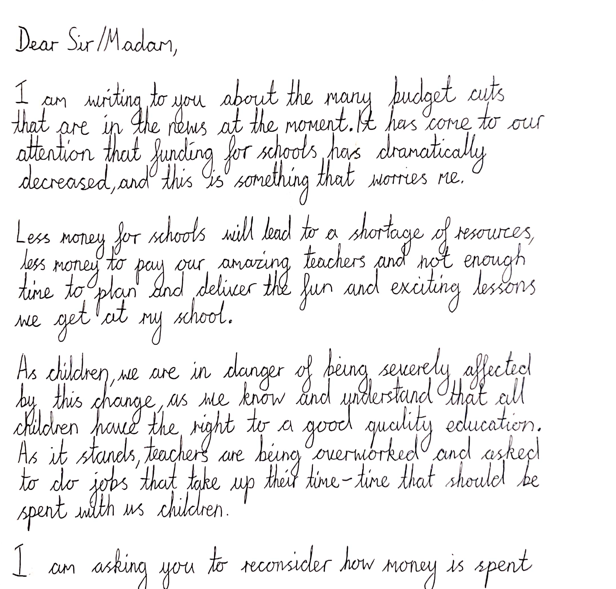 Dear Sir/Madam,
I am writing to you about the many budget cuts
that are in the news at the moment. It has come to our
attention that funding for schools has dramatically
decreased, and this is something that worries me.
Less money for schools will lead to a shortage of resources,
less money to pay our amazing teachers and not enough
time to plan and deliver the fun and exciting lessons
we get at my school.
As children, we are in danger of being severely affected
by this change, as we know and understand that all
children have the right to a good quality education.
As it stands, teachers are being overworked and asked
to do jobs that take up their time-time that should be
spent with us children.
I am asking you to reconsider how money is spent